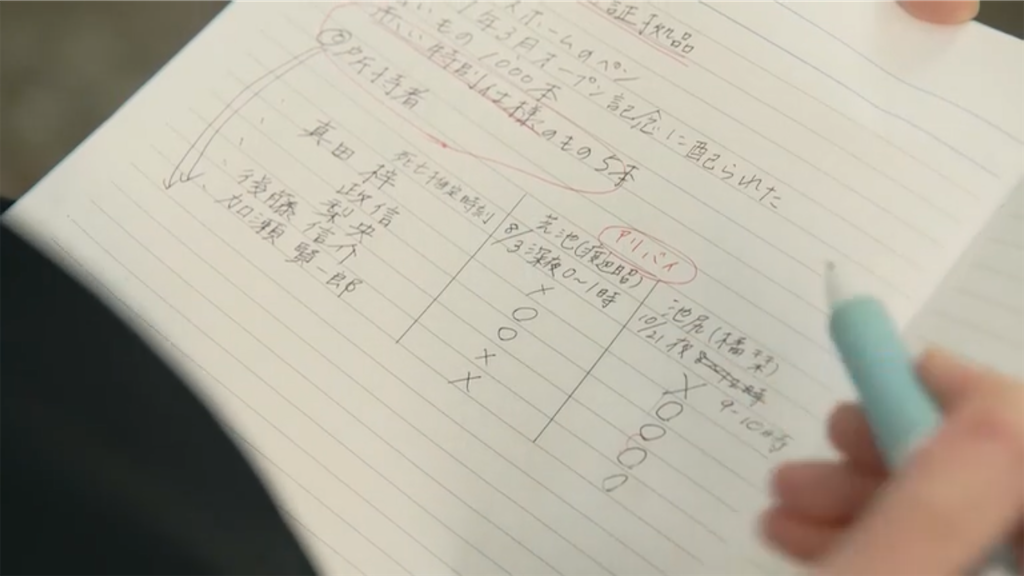 証拠品
スホームのペン
年3月オープン記念に配られた
いもの 1000本
赤い特別仕様のもの 5本
②所持者
アリバイ
死亡推定時刻
8/3深夜0〜1時
池尻(橘 栞)
10/21 夜 9-10時
真田 梓 × ×
政信 ○ ○
梨央 ○ ○
後藤 信介 × ○
加瀬 賢一郎 × ○